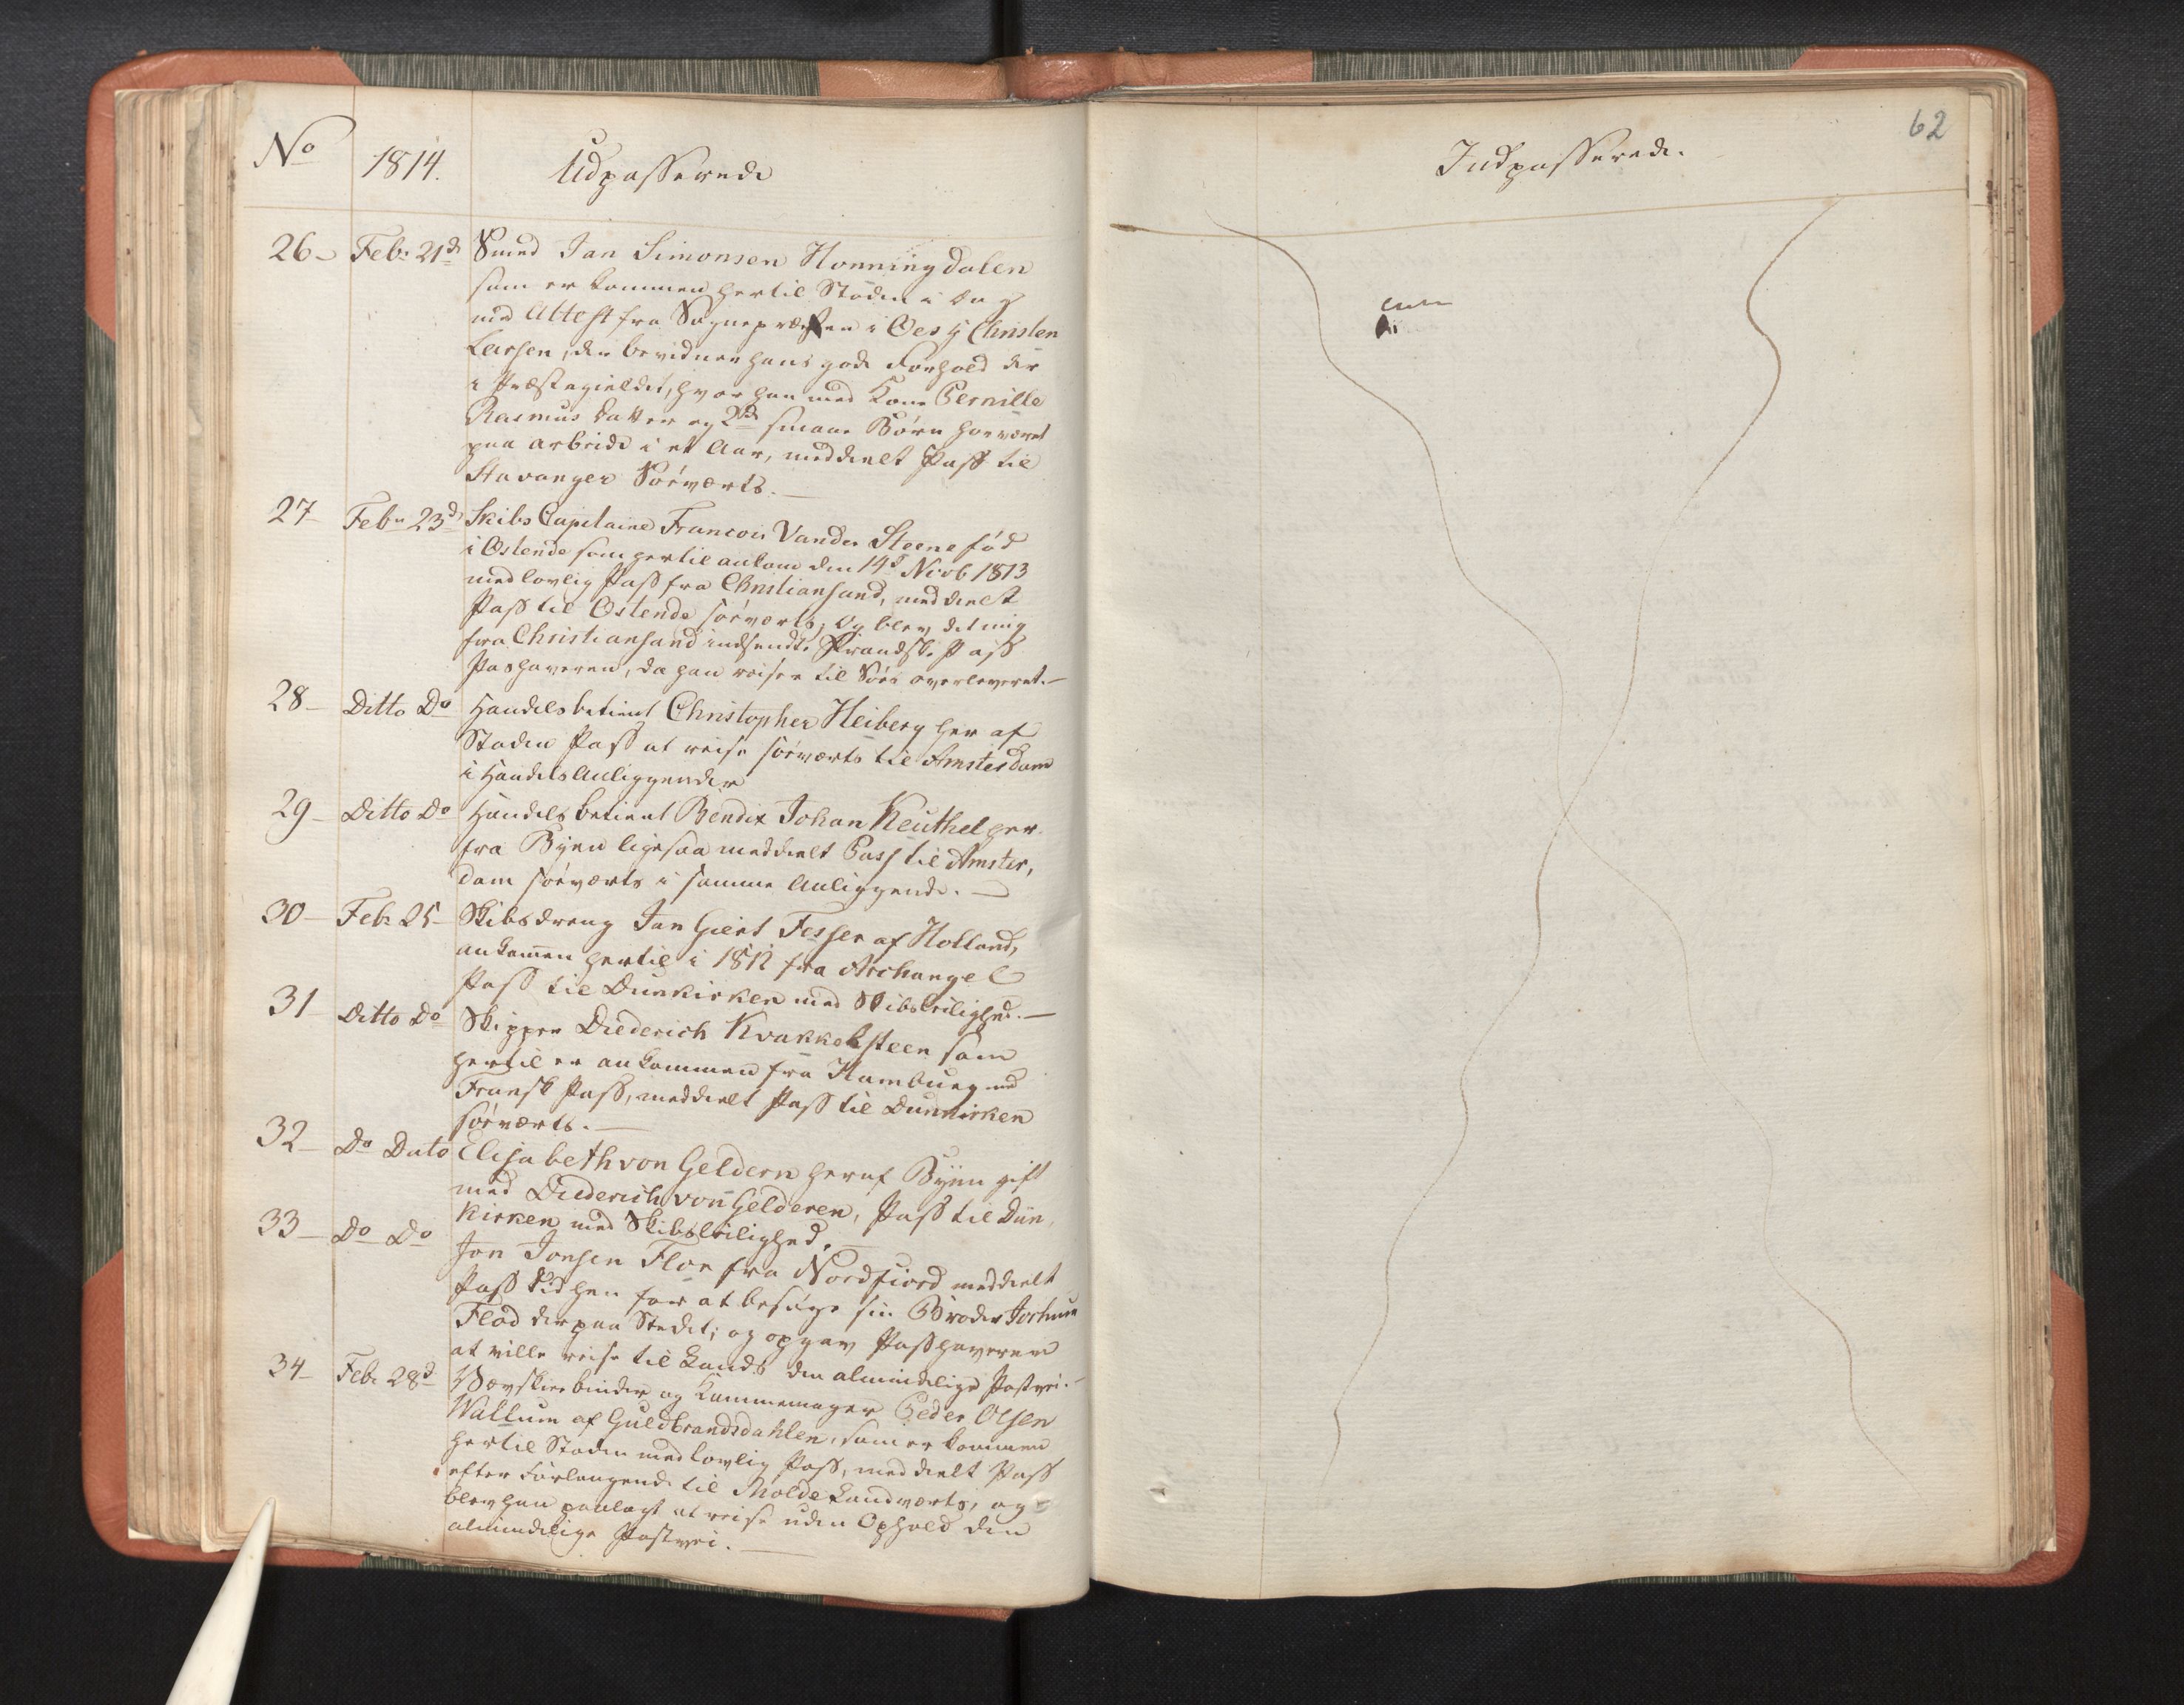 No 1814. Udpasserede
26 - Febr 21de Smed Jan Simonsen Honningdalen
som er kommen hertil Staden i Dag
med Attest fra Sognepræsten i Oes Hr Christen
Larsen, der bevidner hans gode Forhold der
i Præstegieldet, hvor han med Kone Pernille
Rasmusdatter og 2de smaae Børn har været
paa arbeide i et Aar, meddeelt Pass til
Stavanger Søeværts. -
27 - Febr 23d Skibs Capitaine Francois Vander Steene fød
i Ostende som hertil ankom den 14d Novb 1813
med lovlig Pass fra Christiansand, meddeelt
Pass til Ostende søeværts; og blev det mig
fra Christiansand indsendte Frandske Pass
Pashaveren, da han reiser til Søes overleveret. -
28 - Ditto Do Handelsbetient Christopher Heiberg her af
Staden Pass at reise søeværts til Amsterdam
i Handels Anliggender
29 - Ditto Do Handelsbetient Bendix Johan Keuthel her
fra Byen ligesaa meddeelt Pass til Amster,
dam søeværts i samme Anliggende. -
30 - Feb: 25 - Skibsdreng Jan Giert Fesser af Holland,
ankommen hertil i 1812 fra Archangel
Pass til Dunkirken med Skibsleilighed. -
31 - Ditto Do Skipper Diederich Kvakkelsteen som
hertil er ankommen fra Hamburg med
Fransk Pass, meddeelt Pass til Dunkirken
søeværts. -
32 - Do Dato Elisabeth von Geldern heraf Byen gift
med Diederich von Gelderen, Pass til Dün,
kirken med Skibsleilighed.
33 - Do Do Jon Jonsen Flor fra Nordfiord meddeelt
Pass didhen for at besøge sin Broder Jochum
Flod der paa Stedet; og opgav Passhaveren
at ville reise til Lands den almindelige Postvei. -
34 - Feb: 28d Vævskeebinder og Kammemager Peder Olsen
Wallum af Guldbrandsdahlen, som er kommen
hertil Staden med lovlig Pass, meddeelt Pass
efter Forlangende til Molde Landværts, og
blev han paalagt at reise uden Ophold den
almindelige Postvei. -
62
Indpasserede.